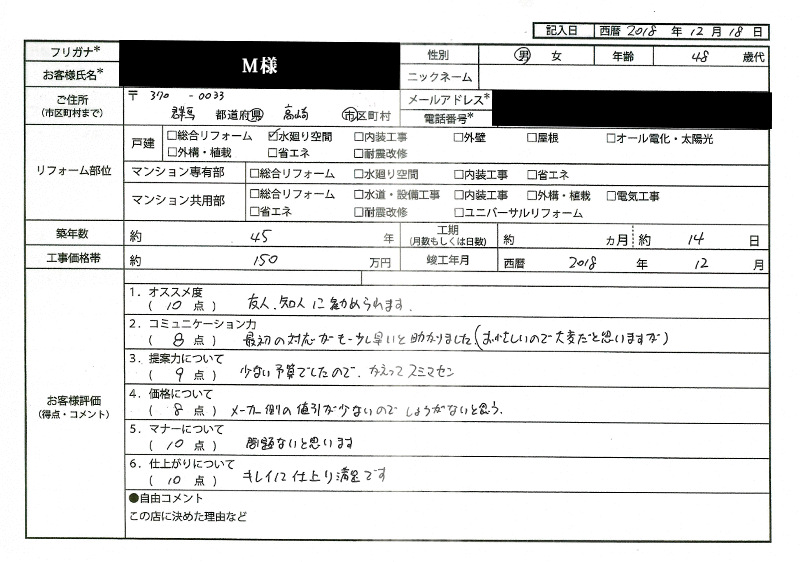 記入日 西暦 2018 年 12 月 18 日
フリガナ* M様 性別 男 女 年齢 48 歳代
お客様氏名* ニックネーム
ご住所 (市区町村まで) 〒 370 - 0033 メールアドレス*
群馬 都道府県 高崎 市区町村 電話番号*
リフォーム部位
戸建 □総合リフォーム ☑水廻り空間 □内装工事 □外壁 □屋根 □オール電化・太陽光
□外構・植栽 □省エネ □耐震改修
マンション専有部 □総合リフォーム □水廻り空間 □内装工事 □省エネ
マンション共用部 □総合リフォーム □水道・設備工事 □内装工事 □外構・植栽 □電気工事
□省エネ □耐震改修 □ユニバーサルリフォーム
築年数 約 45 年 工期 (月数もしくは日数) 約 カ月 約 14 日
工事価格帯 約 150 万円 竣工年月 西暦 2018 年 12 月
お客様評価 (得点・コメント)
1．オススメ度
( 10 点 ) 友人、知人に勧められます.
2．コミュニケーション力
( 8 点 ) 最初の対応がもー少し早いと助かりました(お忙しいので大変だと思いますが)
3．提案力について
( 9 点 ) 少ない予算でしたので、かえってスミマセン
4．価格について
( 8 点 ) メーカー側の値引が少ないので しょうがないと思う.
5．マナーについて
( 10 点 ) 問題ないと思います
6．仕上がりについて
( 10 点 ) キレイに仕上り満足です
●自由コメント
この店に決めた理由など